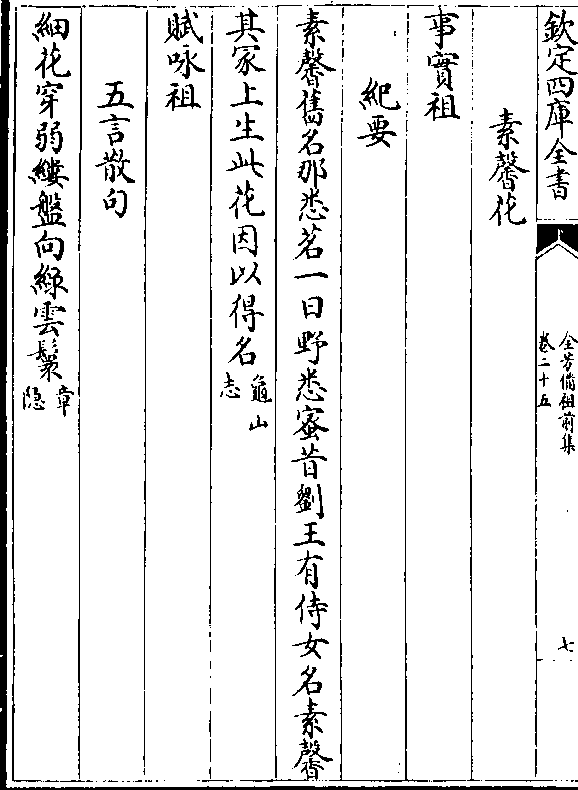 欽定四庫全書
全芳備祖前集
卷二十五
七
素馨花
事實祖
紀要
素馨舊名那悉茗一曰野悉蜜昔劉王有侍女名素馨
其冢上生此花因以得名龜山志
賦咏祖
五言散句
細花穿弱縷盤向緑雲鬟章隠